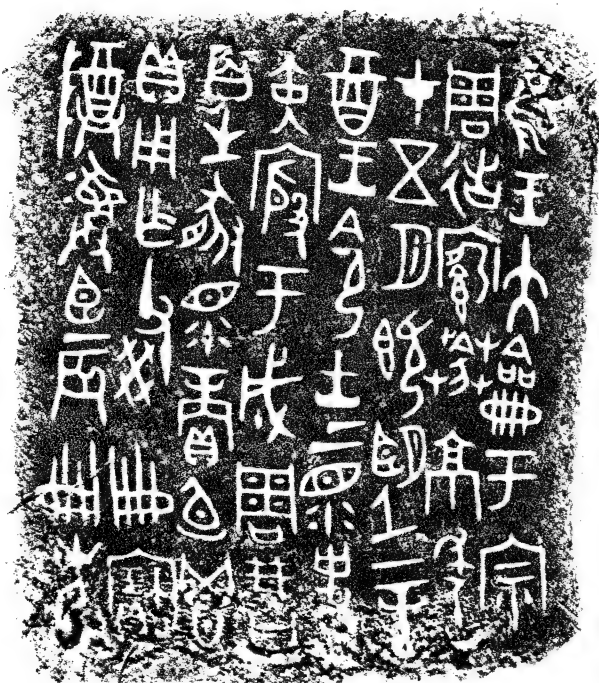 隹王大龠于宗
周徣䆃京年
才五月既望辛
酉王令士上眔史
寅殷于成周
百生豚眔賞卣鬯
貝用乍父癸寶
尊彝臣辰冊冊